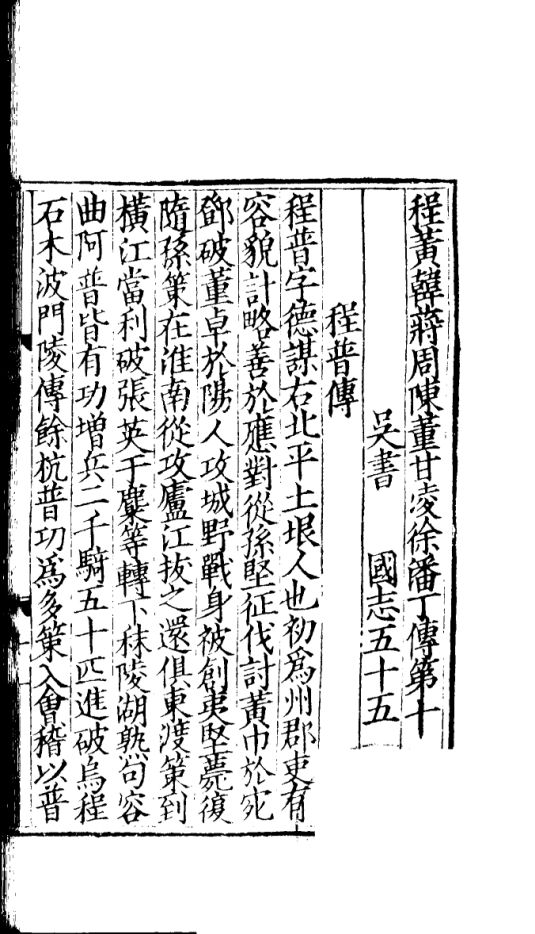 程黃韓蔣周陳董甘淩徐潘丁傳第十
吳書　國志五十五
程普傳
程普字德謀右北平土垠人也初爲州郡吏有
容貌計略善於應對從孫堅征伐討黃巾於宛
鄧破董卓於陽人攻城野戰身被創夷堅薨復
隨孫策在淮南從攻廬江拔之還俱東渡策到
橫江當利破張英于麋等轉下秣陵湖熟句容
曲阿普皆有功增兵二千騎五十匹進破烏程
石木波門陵傳餘杭普功爲多策入會稽以普